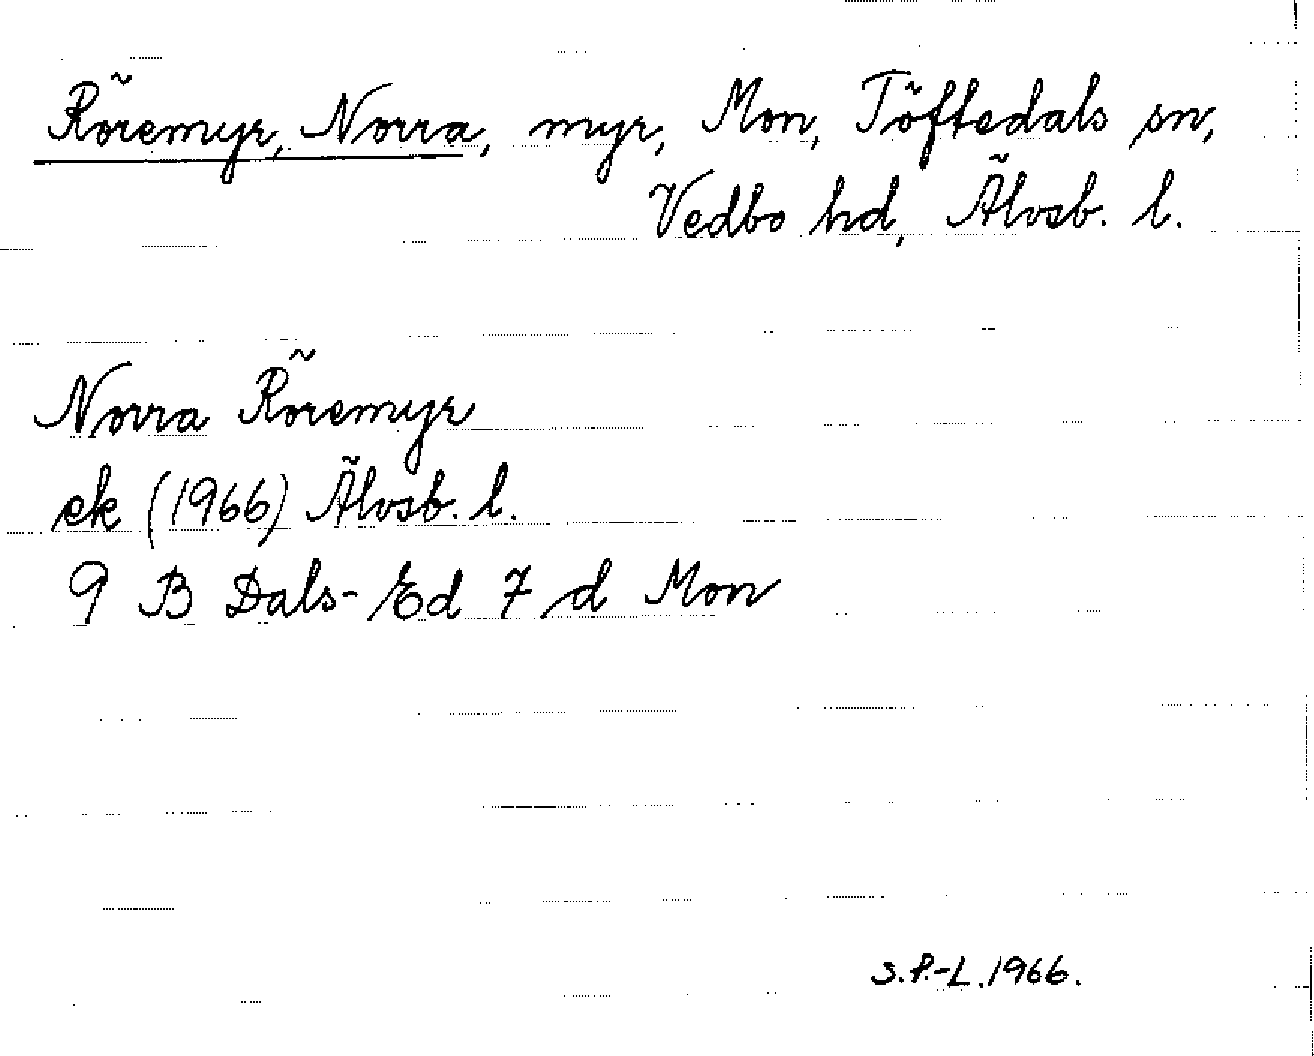 Röremyr, Norra, myr, Mon, Töftedals sn,
Vedbo hd, Älvsb. l.
Norra Röremyr
ek (1966) Älvsb. l.
9 B Dals-Ed 7 d Mon
S.P.-L. 1966.